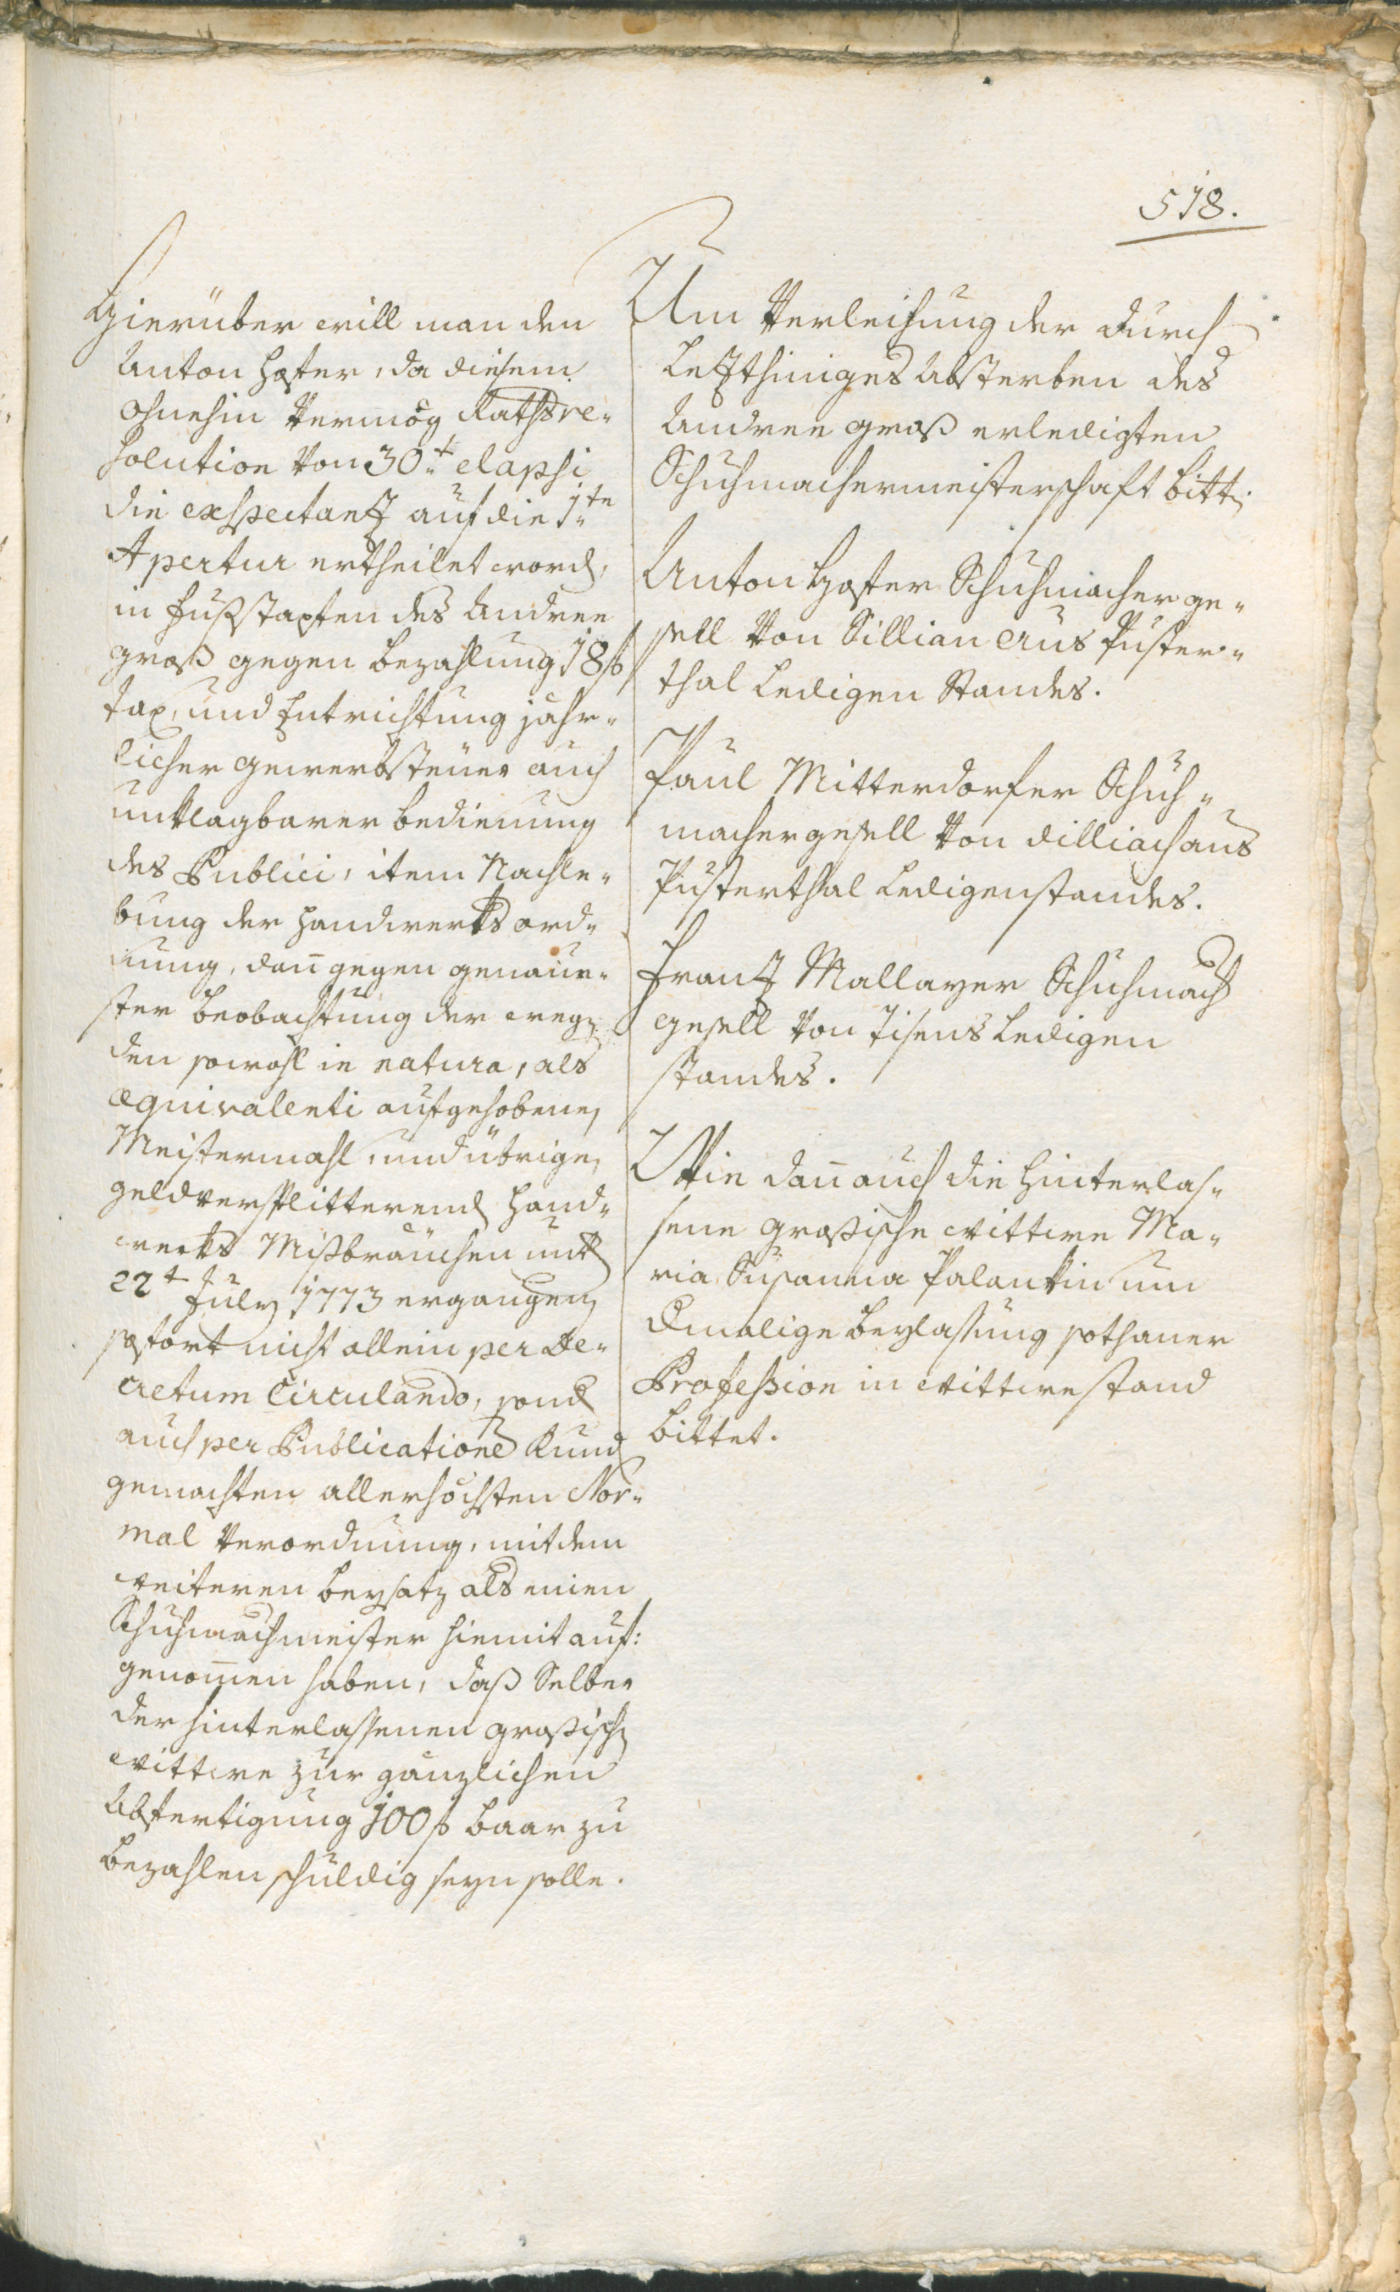 518.
Hierüber will man den
Anton Hofer, da diesem
ohnehin vermög Rathsre-
solution von 30.t elapsi
die exspectantz auf die 1.te
Apertur ertheilet word,
in Fußstapfen des Andree
Groß gegen Bezahlung 18 f
tax, und Entrichtung jähr-
licher gewerbsteüer auch
unklagbarer bedienung
des Publici, item Nachle-
bung der Handwerks ord-
nung, dan̄ gegen genaue-
ster beobachtung der weg
den sowohl in natura, als
æquivalenti aufgehobenen
Meistermahl, und übrigen
geldversplitterend Hand-
werks Mißbräuchen unt
22t July 1773 ergangen
sofort nicht allein per De-
cretum Circulando, sond
auch per Publicatione Kund
gemachten allerhöchsten Nor-
mal Verordnung, mit dem
weiteren beysatz als einen
Schuhmachmeister hiemit auf:
genom̄en haben, daß Selber
der hinterlassenen Großisch
Wittwe zur gänzlichen
Abfertigung 100 f baar zu
bezahlen schuldig seyn solle.
Um Verleihung der durch
letzthiniges Absterben des
Andree Groß erledigten
Schuhmachermeisterschaft bitt:
Anton Hofer Schuhmacher ge-
sell von Sillian aus Puster-
thal ledigen Standes.
Paul Mitterdorfer Schuh-
machergesell von dilliach aus
Pusterthal ledigenstandes.
Frantz Mallayer Schuhmach
gesell von Tisens ledigen
standes.
Wie dan̄ auch die hinterlas-
sene Großische Wittwe Ma-
ria Susanna Palautin um
Einwalige beylassung sothaner
Profession in Wittwestand
bittet.